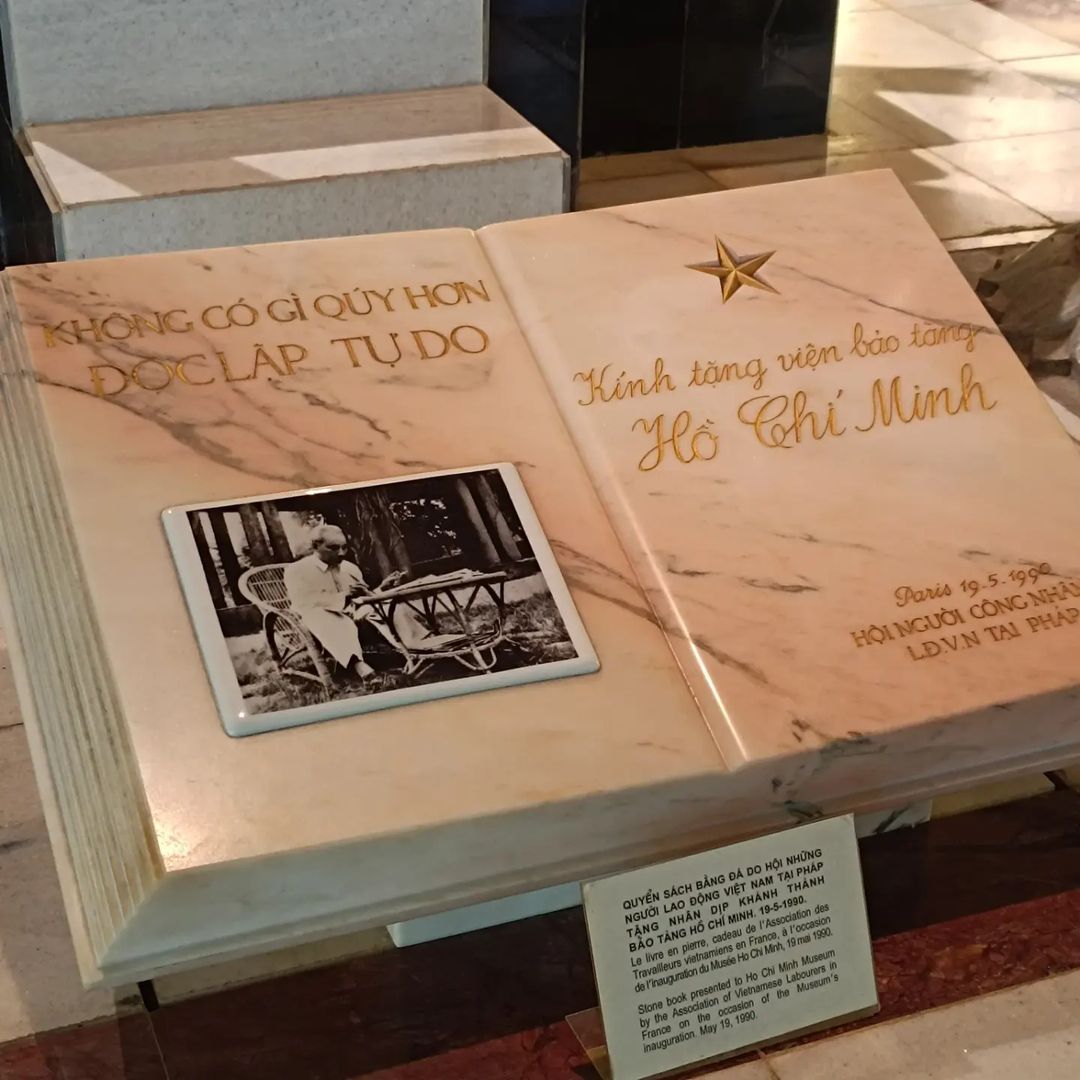 KHÔNG CÓ GÌ QÚY HƠN
ĐỘC LẬP TỰ DO
Kính tặng viện bảo tàng
Hồ Chí Minh
Paris 19.5.1990
HỘI NGƯỜI CÔNG NHÂN
L.Đ.V.N TẠI PHÁP
QUYỂN SÁCH BẰNG ĐÁ DO HỘI NHỮNG
NGƯỜI LAO ĐỘNG VIỆT NAM TẠI PHÁP
TẶNG NHÂN DỊP KHÁNH THÀNH
BẢO TÀNG HỒ CHÍ MINH. 19-5-1990.
Le livre en pierre, cadeau de l'Association des
Travailleurs vietnamiens en France, à l'occasion
de l'inauguration du Musée Ho Chi Minh, 19 mai 1990.
Stone book presented to Ho Chi Minh Museum
by the Association of Vietnamese Labourers in
France on the occasion of the Museum's
inauguration. May 19, 1990.